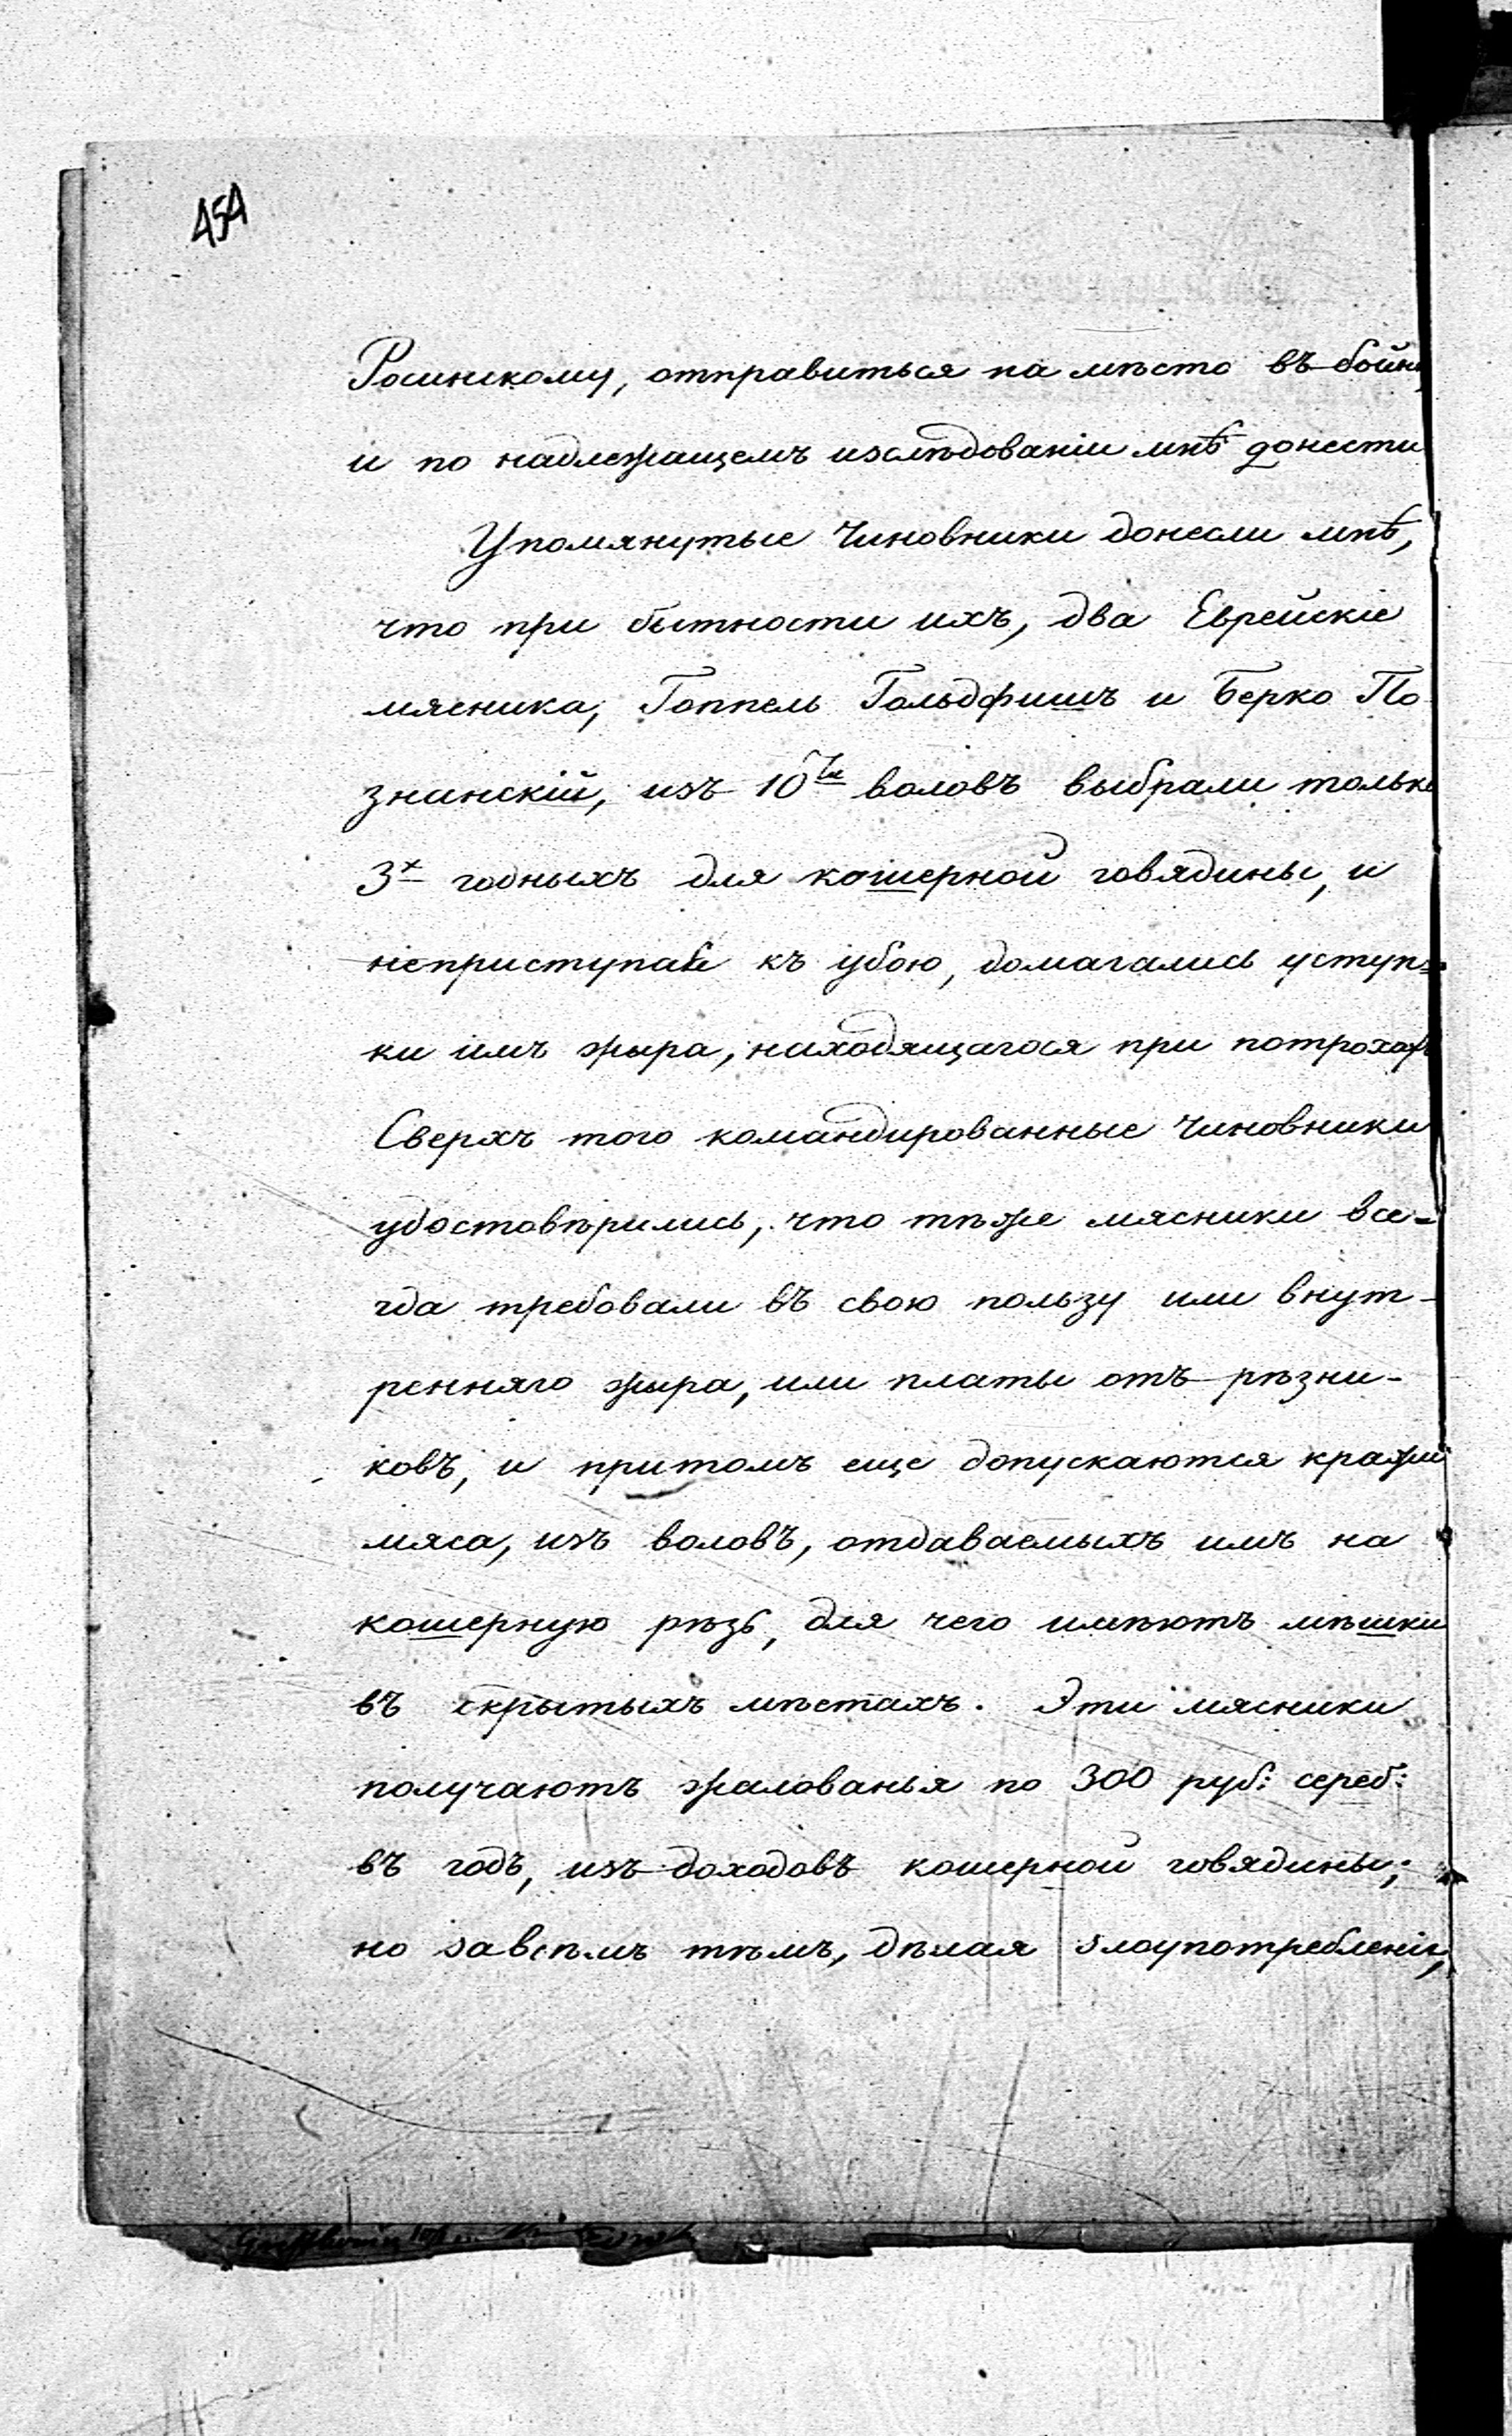 454
Росинскому, отправиться на мѣсто въ бойню
и по надлежащемъ изслѣдованіи мнѣ донести
Упомянутые Чиновники донесли мнѣ,
что при бытности ихъ, два Еврейскіе
мясника, Гоппель Гольдфишъ и Берко По
знинскій, изъ 10ти воловъ выбрали только
3х годныхъ для кошерной говядины, и
неприступая къ убою, домагались уступ=
ки имъ жыра, находящагося при потрохахъ
Сверхъ того командированные Чиновники
удостовѣрились, что тѣже мясники все=
гда требовали въ свою пользу или внут-
ренняго жыра, или платы отъ рѣзни-
ковъ, и притомъ еще допускаются кражи
мяса, изъ воловъ, отдаваемыхъ имъ на
кошерную рѣзь, для чего имѣютъ мѣшки
въ скрытыхъ мѣстахъ. Эти мясники
получаютъ жалованья по 300 руб: сереб:
въ годъ, изъ доходовъ кошерной говядины;
но завсѣмъ тѣмъ, дѣлая злоупотребленія,